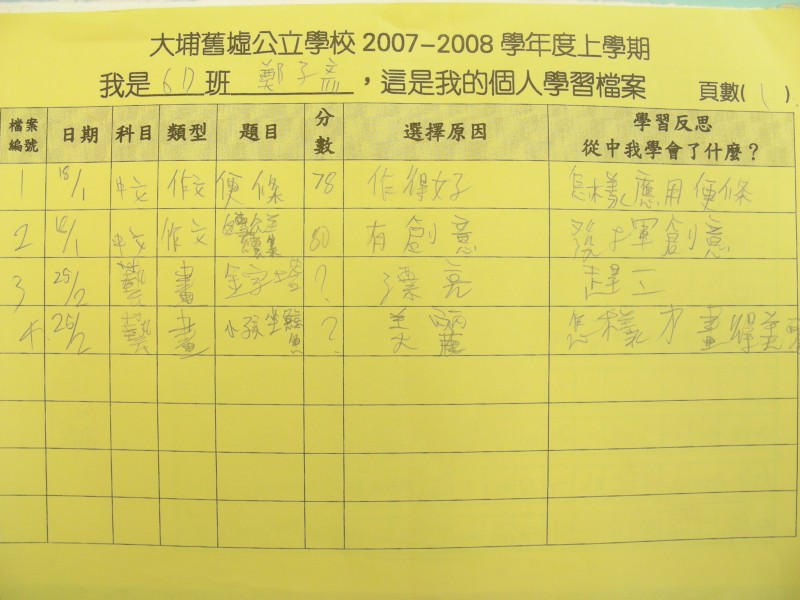 大埔舊墟公立學校 2007-2008 學年度上學期
我是 6D 班 鄭子齋 ，這是我的個人學習檔案 頁數( 1 )
檔案編號 日期 科目 類型 題目 分數 選擇原因 學習反思 從中我學會了什麼？
1 18/1 中文 作文 便條 78 作得好 怎樣應用便條
2 /1 中文 作文 80 有創意 發揮創意
3 25/2 藝 畫 金字塔 ? 漂亮 趕工
4. 26/2 藝 畫 小孩坐鯨魚 ? 美麗 怎樣才畫得美麗